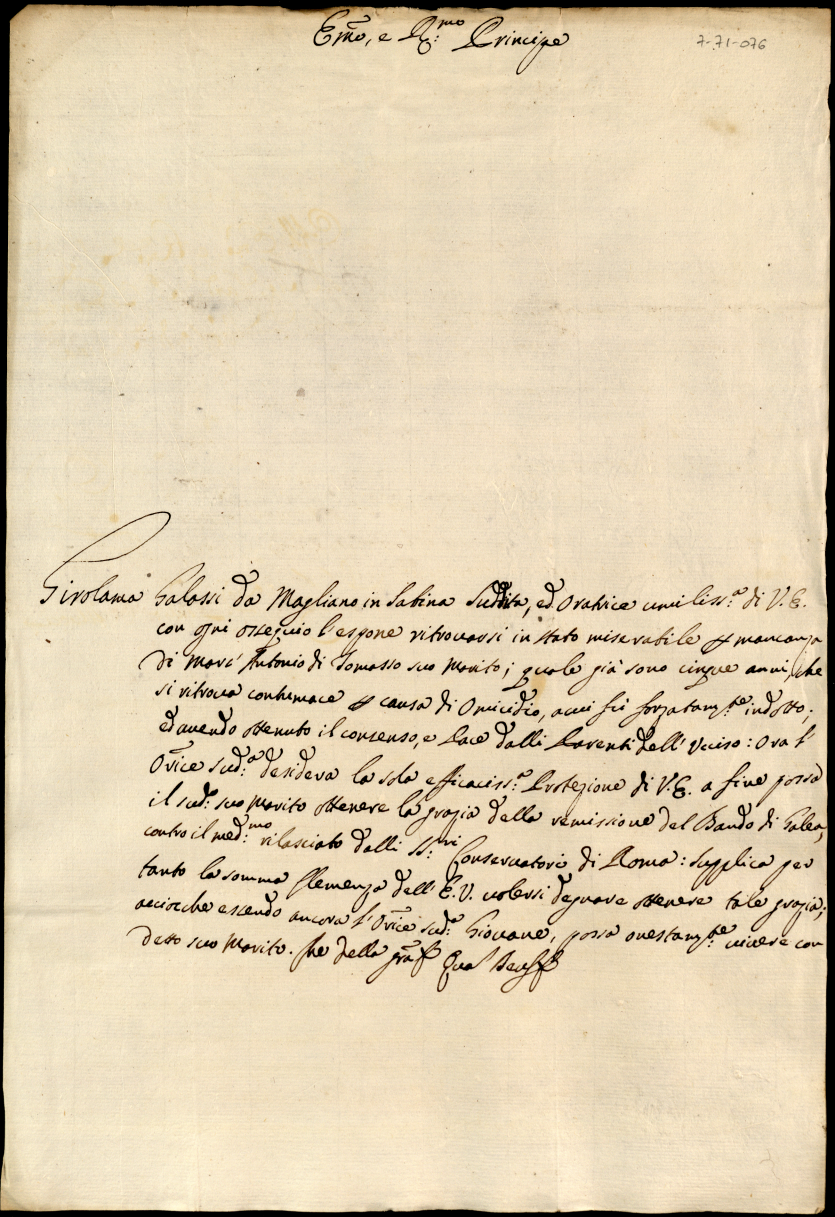 Em̃o, e R:mo Principe
7-71-076
Girolama Galassi da Magliano in Sabina Suddita, ed Oratrice umiliss:a di V. E.
con ogni ossequio l'espone ritrovarsi in stato miserabile p mancanza
di Marc' Antonio di Tomasso suo Marito; quale già sono cinque anni, che
si ritrova contumace p causa di Omicidio, a cui fù forzatam:te indotto;
ed avendo ottenuto il consenso, e Pace dalli Parenti dell' Ucciso: Ora l'
Or̃ice sud:a desidera la sola efficaciss:a Protezione di V. E. a fine possa
il sud:o suo Marito ottenere la grazia della remissione del Bando di Galea,
contro il med:mo rilasciato dalli SS:ri Conservatori di Roma: supplica per
tanto la somma Clemenza dell' E. V. volersi degnare ottenere tale grazia;
accioche essendo ancora l' Or̃ice sud:a Giovane, possa onestam:te vivere con
detto suo Marito. Che della gra͂